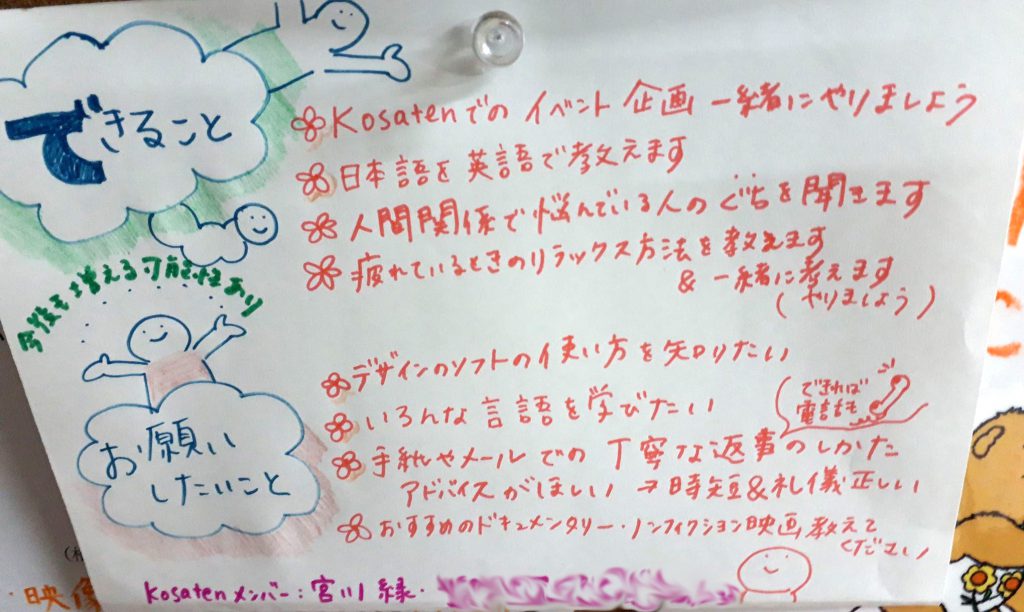 できること
Kosatenでの イベント 企画 一緒にやりましょう
日本語を英語で教えます
人間関係で悩んでいる人のぐちを聞きます
疲れているときのリラックス方法を教えます
& 一緒に考えます
(やりましょう)
今後も増える可能性あり
お願い
したいこと
デザインのソフトの使い方を知りたい
いろんな言語を学びたい
手紙やメールでの丁寧な返事のしかた
できれば
電話も
アドバイスがほしい → 時短&礼儀正しい
おすすめのドキュメンタリー・ノンフィクション映画教えて
ください
Kosatenメンバー:宮川 緑・
・映像